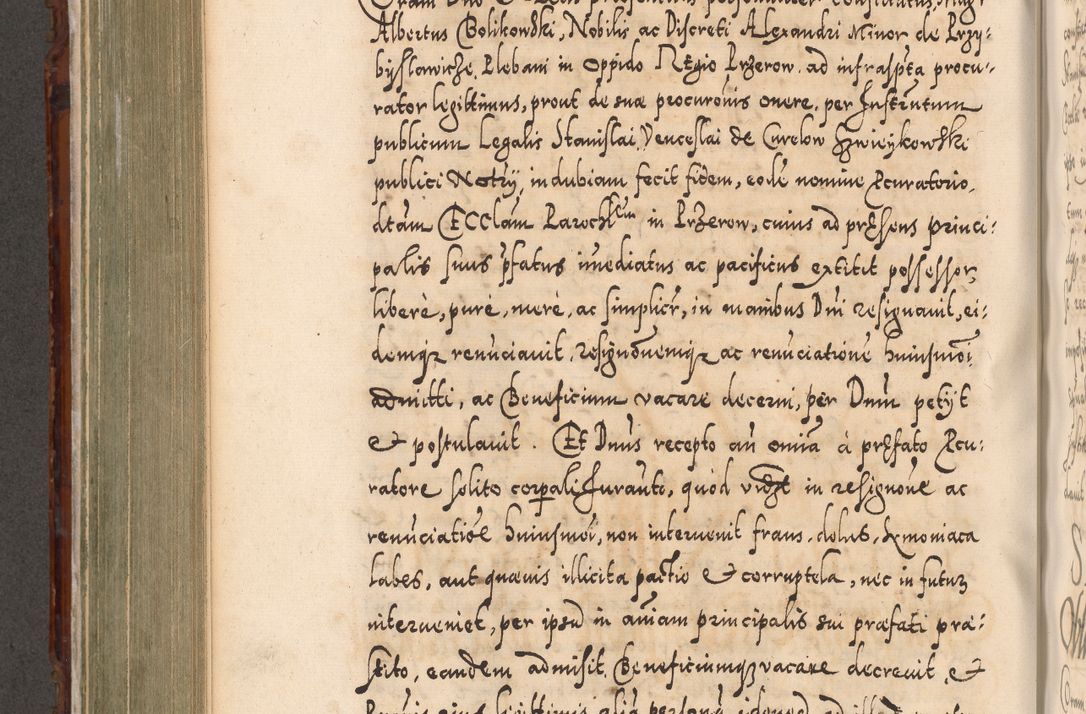 Coram Dno &
Albertus Bolikowski, Nobilis ac Discreti Alexandri Minor de Przy-
bysławicze, Plebani in oppido Regio Przerow. ad infraspta procu-
rator legittimus, prout de suæ procurõnis onere, per Instrũtum
publicum Legalis Stanislai Venceslai de Curelow Szwieykowski
publici Notrÿ, indubiam fecit fidem, eodẽ nomine Pcuratorio,
dtam Ecclam Parochlem in Przerow, cuius ad præsens princi-
palis suus pfatus imediatus ac pacificus extitit possessor,
liberè, purè, merè, ac simplicr, in manibus Dni resignauit, ei-
demq renũciauit, resignõnemq ac renũciatione huiusmõi
admitti, ac Beneficium vacare decerni, per Dnm petÿt
& postulauit. Et Dnus recepto añ omia à præfato Pcu-
ratore solito corpali Iuramto, quòd vidzt in resignõne ac
renũciatiõe huiusmõi, non interuenit fraus, dolus, Symoniaca
labes, aut quæuis illicita pactio & corruptela, nec in futuz
interueniet, per ipsũ in aniam principalis sui præfati præ-
stito, eandem admisit, Beneficiumq vacare decreuit, &